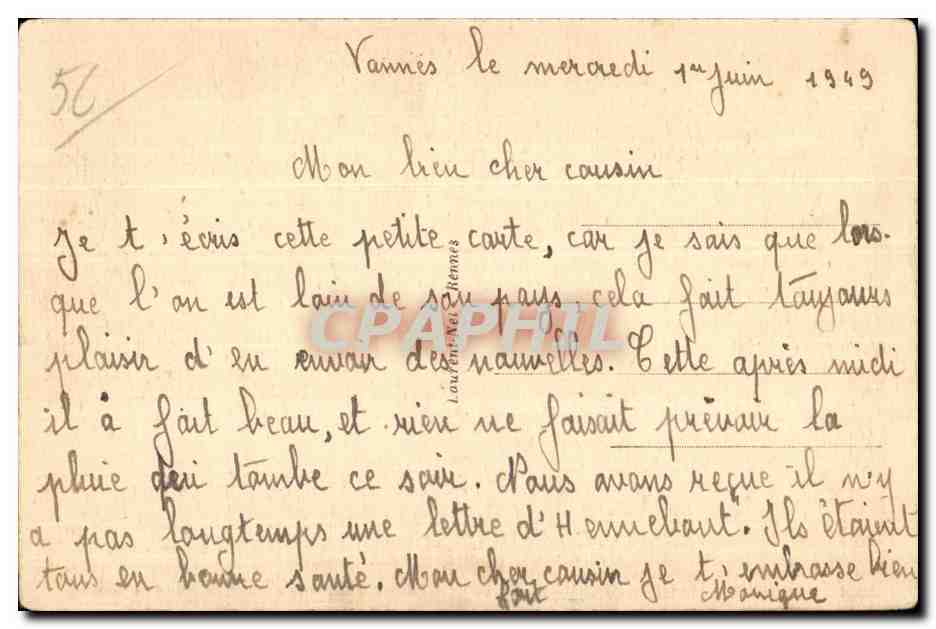 56
Vannes le mercredi 1er Juin 1949
Mon bien cher cousin
Je t'écris cette petite carte, car je sais que lors-
que l'on est loin de son pays, cela fait toujours
plaisir d'en envoir des nouvelles. Cette après midi
il à fait beau, et rien ne faisait prévoir la
pluie qui tombe ce soir. Nous avons reçue il n'y
a pas longtemps une lettre d'Hennebont. Ils étaient
tous en bonne santé. Mon cher cousin je t'embrasse bien
fort Monique
Laurent-Nel Rennes
CPAPHIL